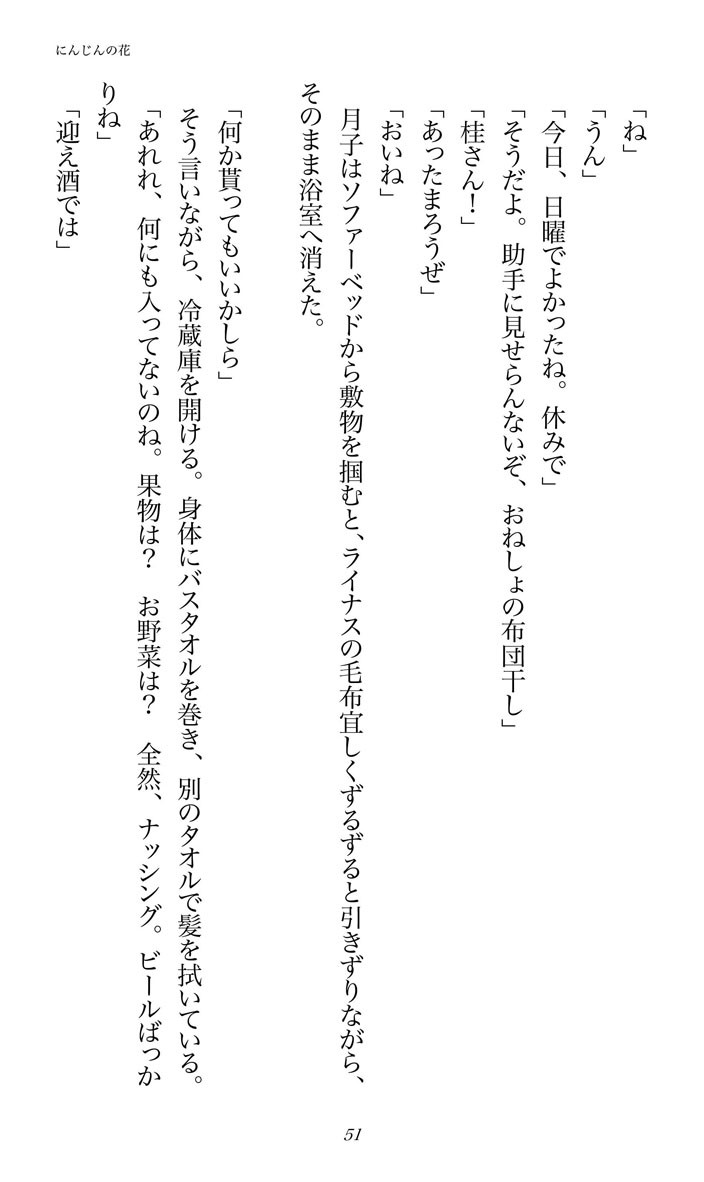 にんじんの花
「ね」
「うん」
「今日、日曜でよかったね。休みで」
「そうだよ。助手に見せらんないぞ、おねしょの布団干し」
「桂さん！」
「あったまろうぜ」
「おいね」
月子はソファーベッドから敷物を掴むと、ライナスの毛布宜しくずるずると引きずりながら、
そのまま浴室へ消えた。
「何か貰ってもいいかしら」
そう言いながら、冷蔵庫を開ける。身体にバスタオルを巻き、別のタオルで髪を拭いている。
「あれれ、何にも入ってないのね。果物は？　お野菜は？　全然、ナッシング。ビールばっか
りね」
「迎え酒では」
51